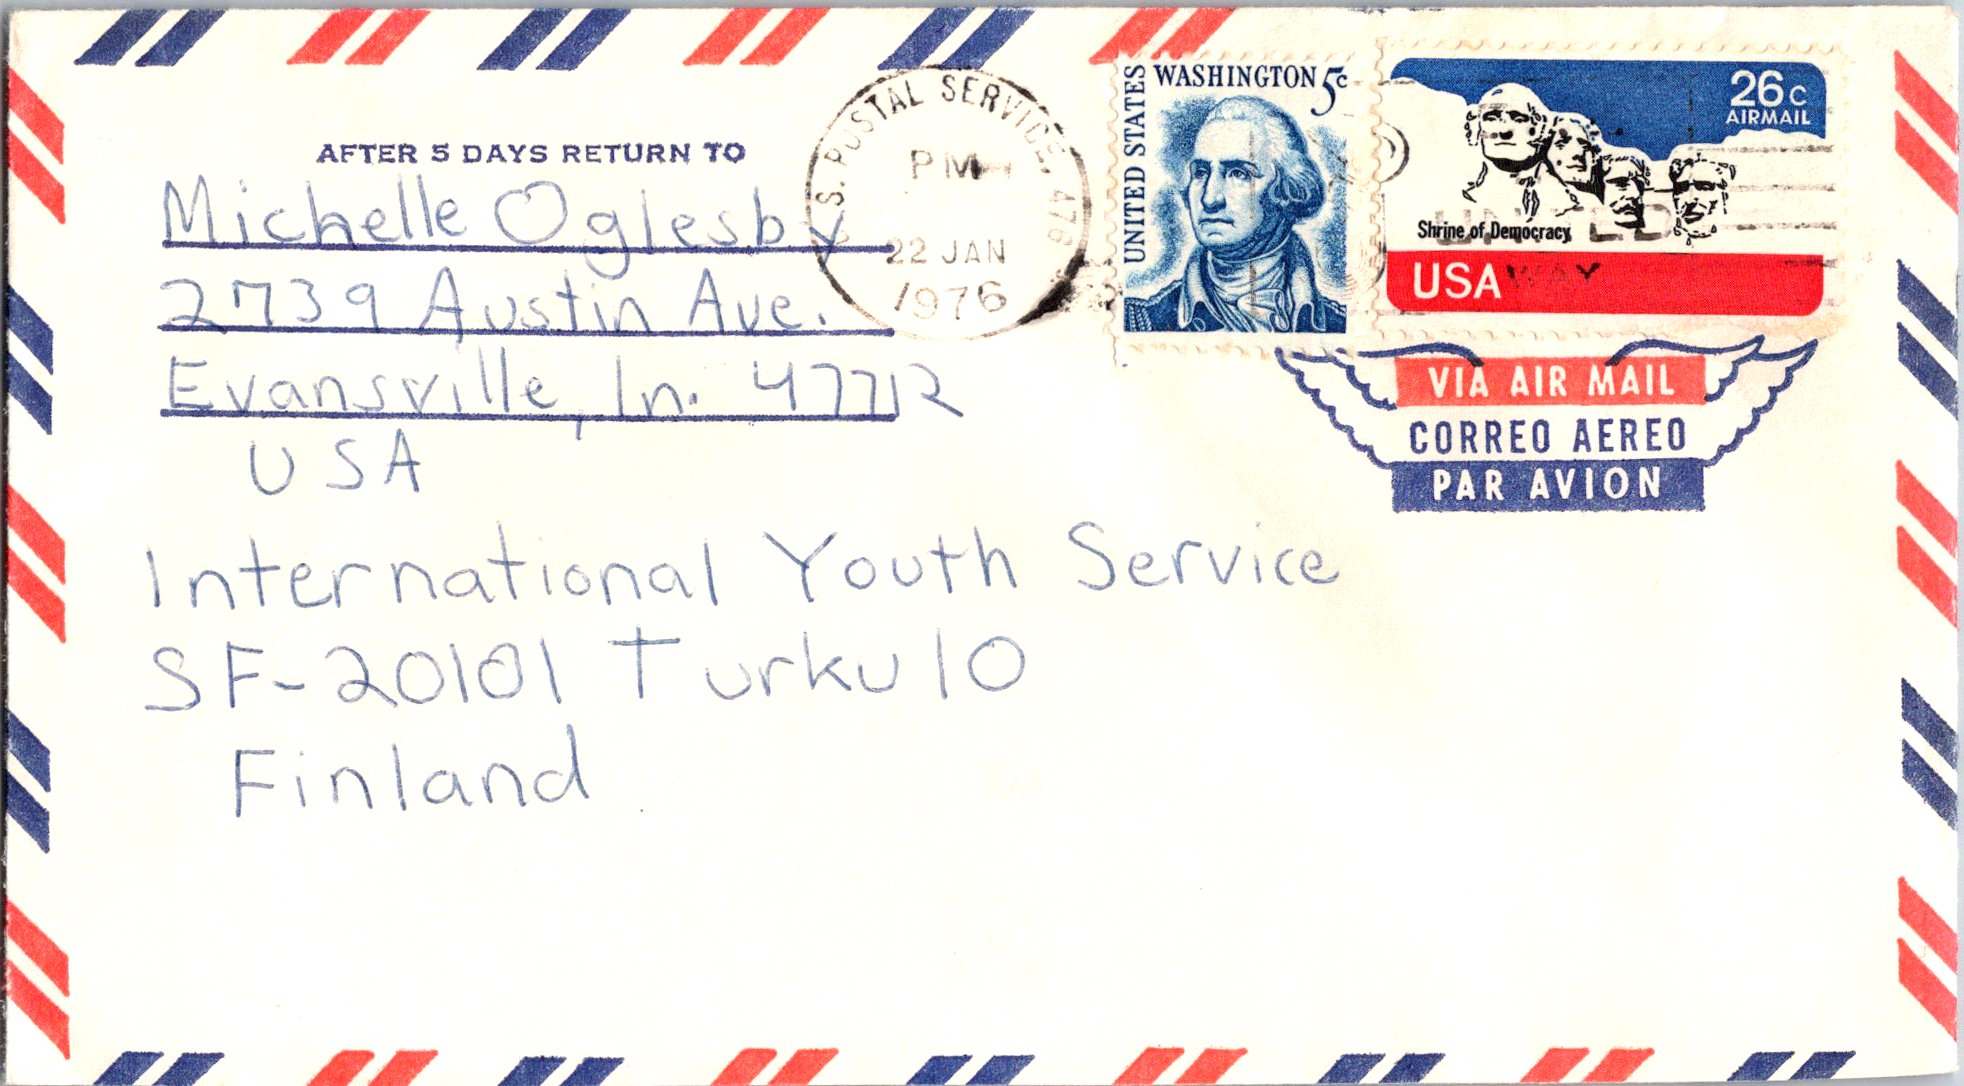 AFTER 5 DAYS RETURN TO
Michelle Oglesby
2739 Austin Ave.
Evansville, In. 47712
USA
U.S. POSTAL SERVICE. 476
PM
22 JAN
1976
UNITED STATES
WASHINGTON 5c
26c
AIRMAIL
Shrine of Democracy
USA
UNITED
WAY
VIA AIR MAIL
CORREO AEREO
PAR AVION
International Youth Service
SF-20101 Turku 10
Finland